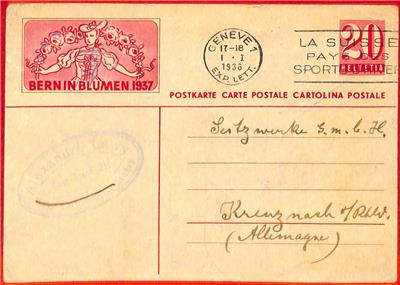 BERN IN BLUMEN 1937
GENEVE 1
17-18
1 · I
1938
EXP. LETT.
LA SUISSE
PAYS DES
SPORTS
20
HELVETIA
POSTKARTE CARTE POSTALE CARTOLINA POSTALE
Seitzwerke G.m.b.H.
Kreuznach a/Rhld.
(Allemagne)